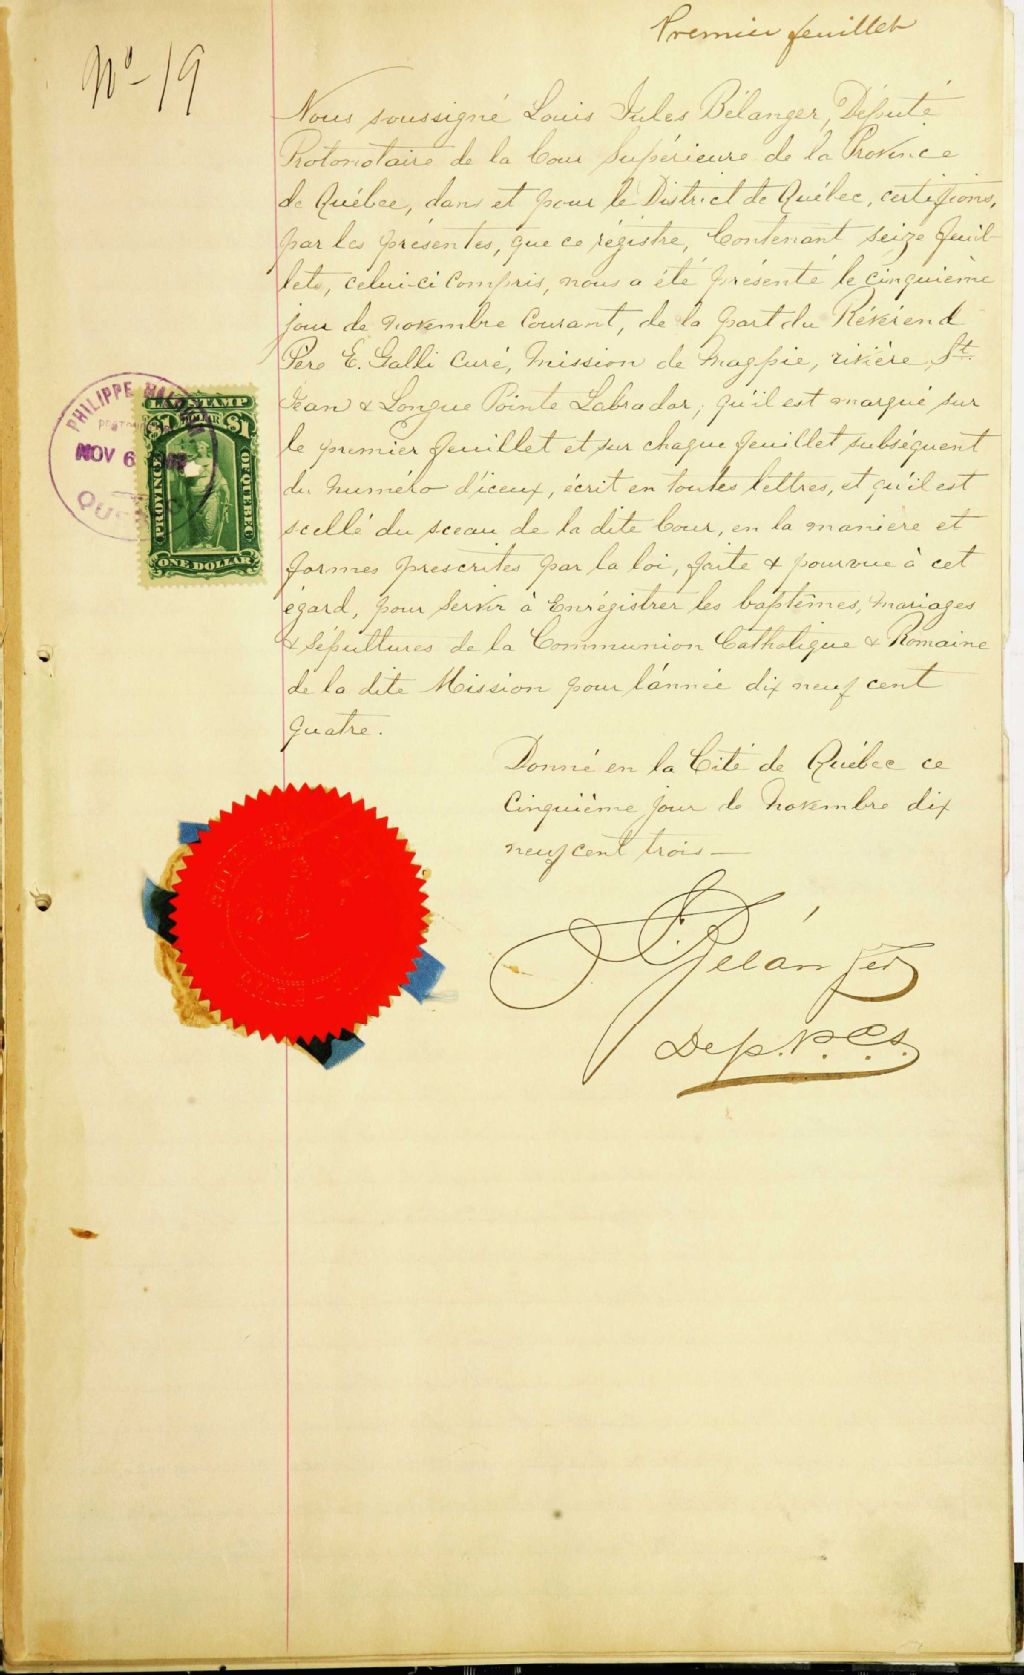 Premier feuillet
No 19
Nous soussigné Louis Jules Bélanger, Député
Protonotaire de la Cour Supérieure de la Province
de Québec, dans et pour le District de Québec, certifions,
par les présentes, que ce régistre, Contenant seize feuil-
lets, celui-ci compris, nous a été présenté le cinquième
jour de novembre courant, de la part du Révérend
Père E. Galli curé, Mission de Magpie, rivière St.
Jean & Longue Pointe Labrador, qu'il est marqué sur
le premier feuillet et sur chaque feuillet subséquent
du numéro d'iceux, écrit en toutes lettres, et qu'il est
scellé du sceau de la dite Cour, en la manière et
formes prescrites par la loi, faite & pourvue à cet
égard, pour servir à Enrégistrer les baptêmes, mariages
& sépultures de la Communion Catholique & Romaine
de la dite Mission pour l'année dix neuf cent
quatre.
Donné en la Cité de Québec ce
Cinquième jour de Novembre dix
neuf cent trois—
Bélanger
Dep. P.C.S.
PHILIPPE
NOV 6
LAW STAMP
$1 DOLLAR $1
PROVINCE
OF QUEBEC
ONE DOLLAR